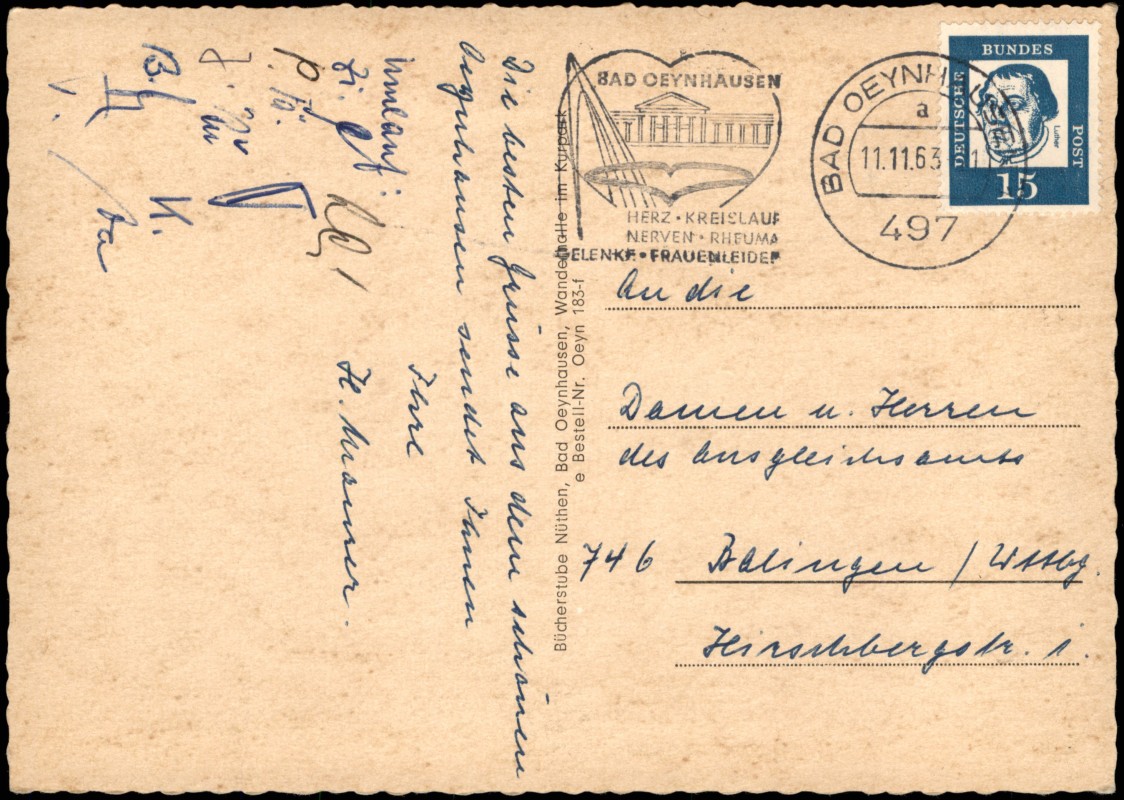 Die besten Grüsse aus dem schönen
Oeynhausen sendet Ihnen
Ihre
H. Maurer.
Umlauf:
13./
II
K.
Bücherstube Nüthen, Bad Oeynhausen, Wandelhalle im Kurpark
e Bestell-Nr. Oeyn 183-f
BAD OEYNHAUSEN
HERZ · KREISLAUF
NERVEN · RHEUMA
GELENKE · FRAUENLEIDEN
BAD OEYNHAUSEN
a
11.11.63
497
DEUTSCHE
BUNDES
POST
Luther
15
An die
Damen u. Herren
des Ausgleichsamts
746 Balingen / Wttbg.
Hirschbergstr. 1.